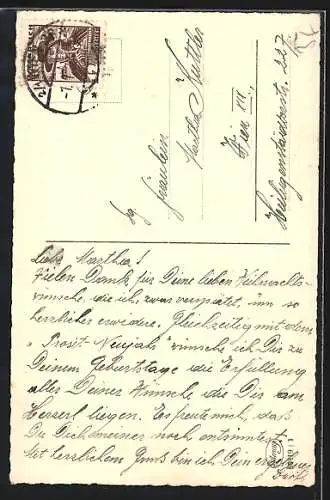 Fräulein
Martha
Wien III.
Heiligenstädterstr. 227
Liebe Martha!
Vielen Dank für Deine lieben Weihnachts-
wünsche, die ich, zwar verspätet, um so
herzlicher erwidere. Gleichzeitig mit dem
"Prosit-Neujahr" wünsche ich Dir zu
Deinem Geburtstage die Erfüllung
aller Deiner Wünsche die Dir am
Herzerl liegen. Es freute mich, daß
Du Dich meiner noch
Mit herzlichem Gruß bin ich Dein